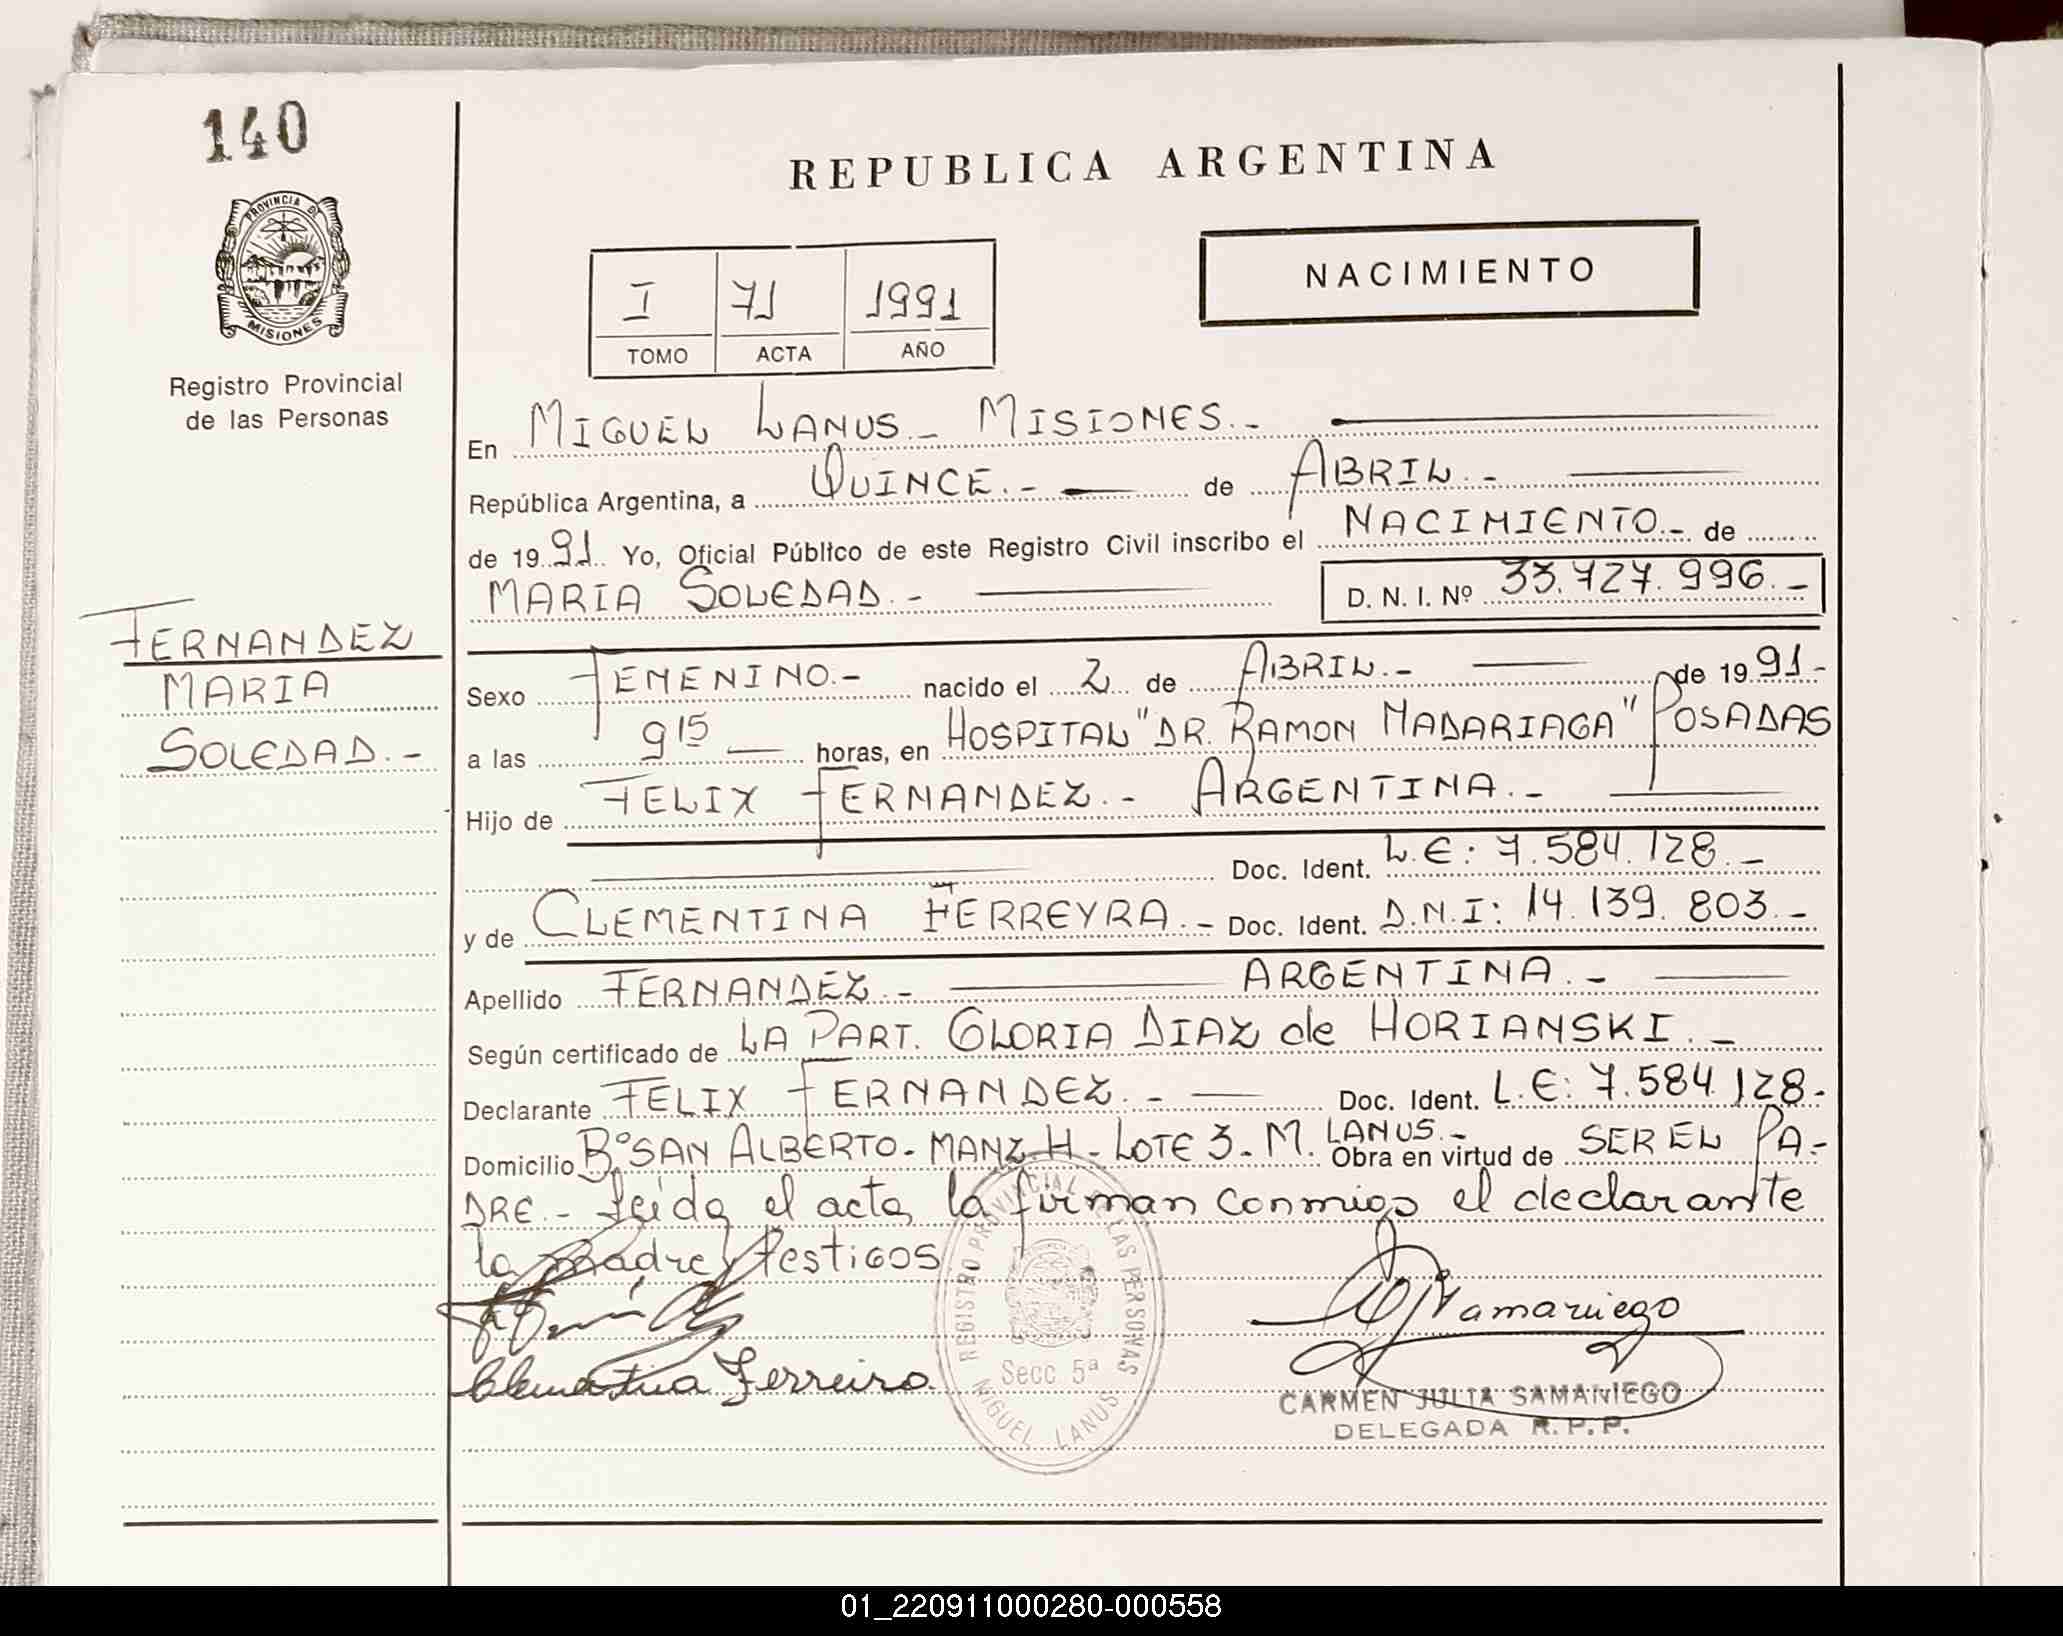 140
PROVINCIA DE
MISIONES
Registro Provincial
de las Personas
FERNANDEZ
MARIA
SOLEDAD.-
REPUBLICA ARGENTINA
NACIMIENTO
I 71 1991
TOMO ACTA AÑO
En MIGUEL LANUS.- MISIONES.-
República Argentina, a QUINCE.- de ABRIL.-
de 1991 Yo, Oficial Público de este Registro Civil inscribo el NACIMIENTO.- de
MARIA SOLEDAD.- D. N. I. Nº 33.727.996.-
Sexo FEMENINO.- nacido el 2 de ABRIL.- de 1991.-
a las 9 15 horas, en HOSPITAL "DR. RAMON MADARIAGA" POSADAS
Hijo de FELIX FERNANDEZ.- ARGENTINA.-
Doc. Ident. L.E: 7.584.128.-
y de CLEMENTINA FERREYRA.- Doc. Ident. D.N.I: 14.139.803.-
Apellido FERNANDEZ.- ARGENTINA.-
Según certificado de LA PART. GLORIA DIAZ de HORIANSKI.-
Declarante FELIX FERNANDEZ.- Doc. Ident. L.E: 7.584.128-
Domicilio Bº SAN ALBERTO- MANZ-H- LOTE 3- M. LANUS.- Obra en virtud de SER EL PA-
DRE.- Leída el acta la firman conmigo el declarante
la madre y testigos
Clementina Ferreira.
Samaniego
REGISTRO PROVINCIAL DE LAS PERSONAS
Secc 5ª
MIGUEL LANUS
CARMEN JULIA SAMANIEGO
DELEGADA R.P.P.
01_220911000280-000558